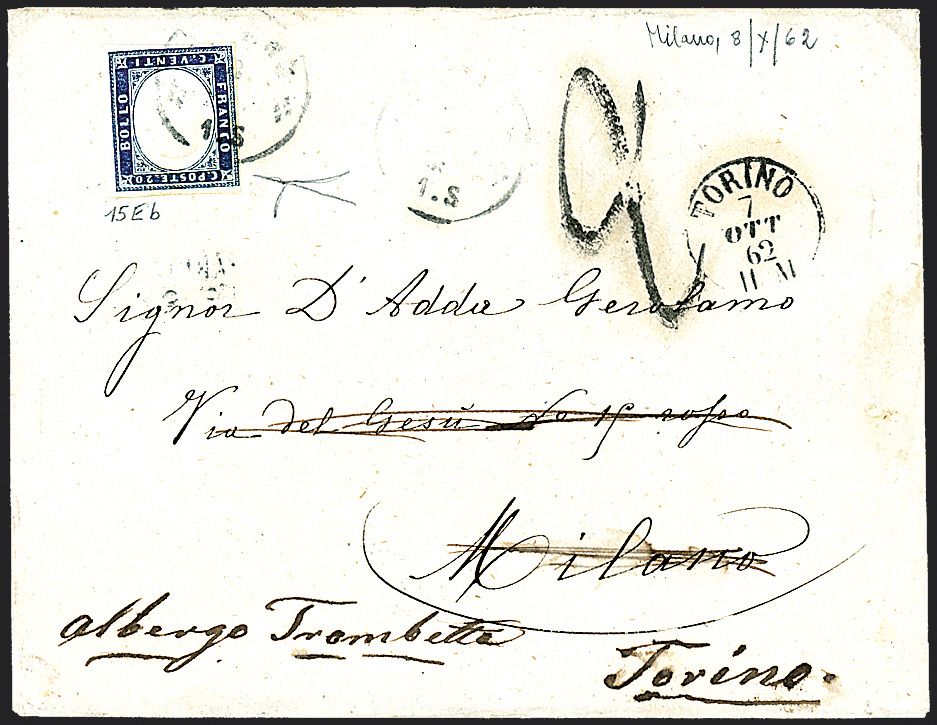 Milano, 8/X/62
C. VENTI
BOLLO
FRANCO
C. POSTE 20
1.S
1.S
15Eb
TORINO
7
OTT
62
11 M
Signor D'Adda Gerolamo
Via del Gesù No 15 rosso
Milano
albergo Trombetta
Torino.